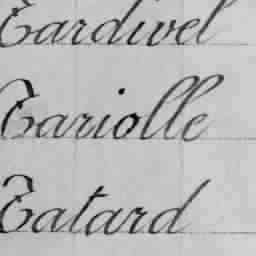 Tardivel
Tariolle
Tatard